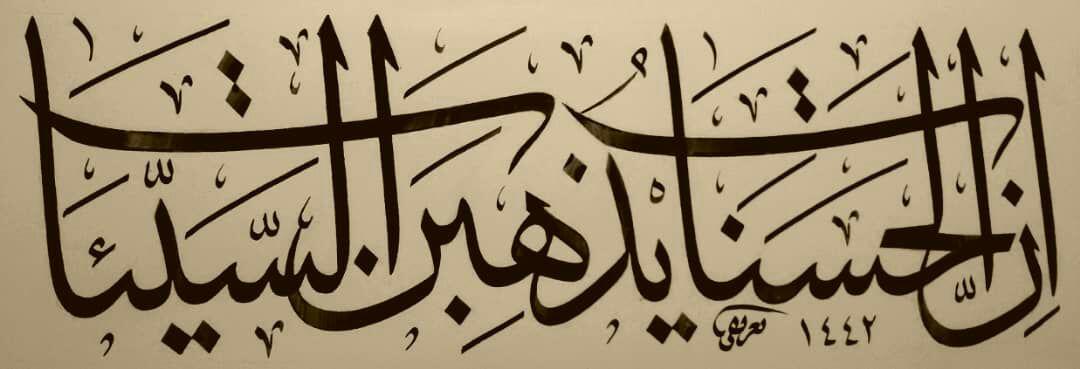 إِنَّ الْحَسَنَاتِ يُذْهِبْنَ السَّيِّئَاتِ
١٤٤٢